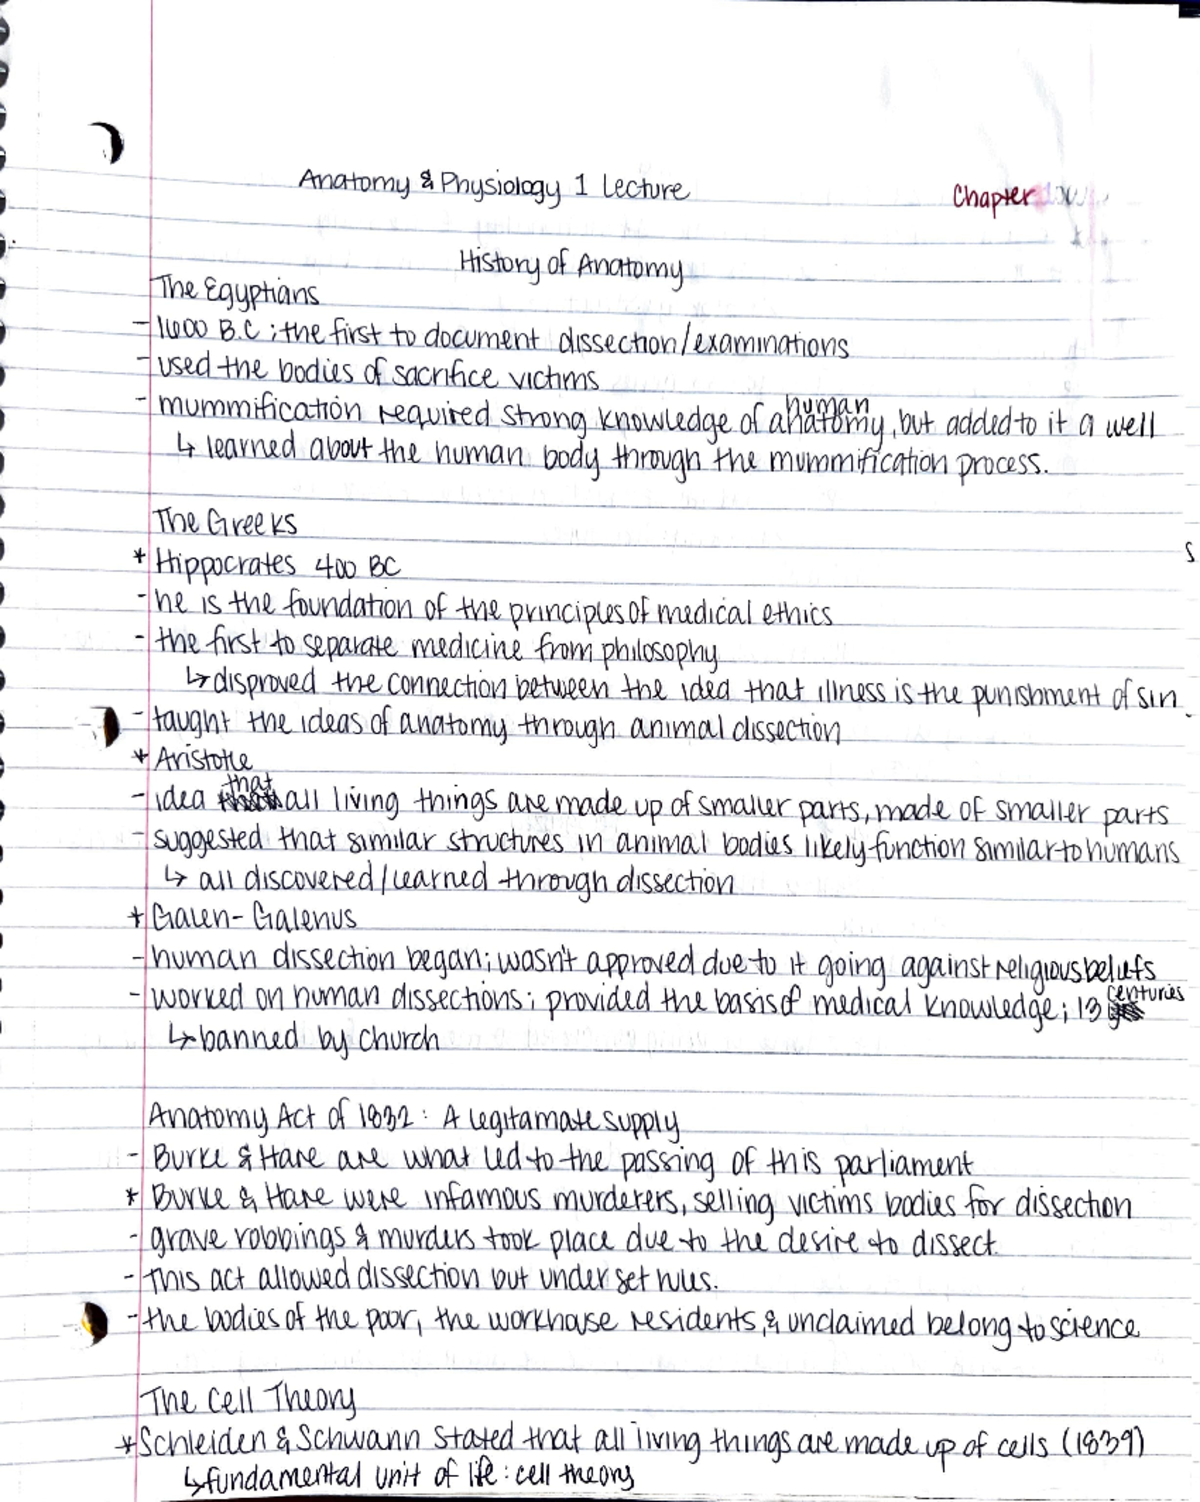 Anatomy & Physiology 1 Lecture
Chapter
History of Anatomy
The Egyptians
- 1600 B.C ; the first to document dissection/examinations
- used the bodies of sacrifice victims
- mummification required strong knowledge of human anatomy, but added to it a well
↳ learned about the human body through the mummification process.
The Greeks
* Hippocrates 400 BC
- he is the foundation of the principles of medical ethics
- the first to separate medicine from philosophy
↳ disproved the connection between the idea that illness is the punishment of sin.
- taught the ideas of anatomy through animal dissection
* Aristotle
- idea that all living things are made up of smaller parts, made of smaller parts
- suggested that similar structures in animal bodies likely function similar to humans
↳ all discovered/learned through dissection
* Galen - Galenus
- human dissection began; wasn't approved due to it going against religious beliefs
- worked on human dissections; provided the basis of medical knowledge; 13 centuries
↳ banned by church
Anatomy Act of 1832: A legitamate supply
- Burke & Hare are what led to the passing of this parliament
* Burke & Hare were infamous murderers, selling victims bodies for dissection
- grave robbings & murders took place due to the desire to dissect.
- This act allowed dissection but under set rules.
- the bodies of the poor, the workhouse residents, & unclaimed belong to science
The Cell Theory
* Schleiden & Schwann stated that all living things are made up of cells (1839)
↳ fundamental unit of life: cell theory